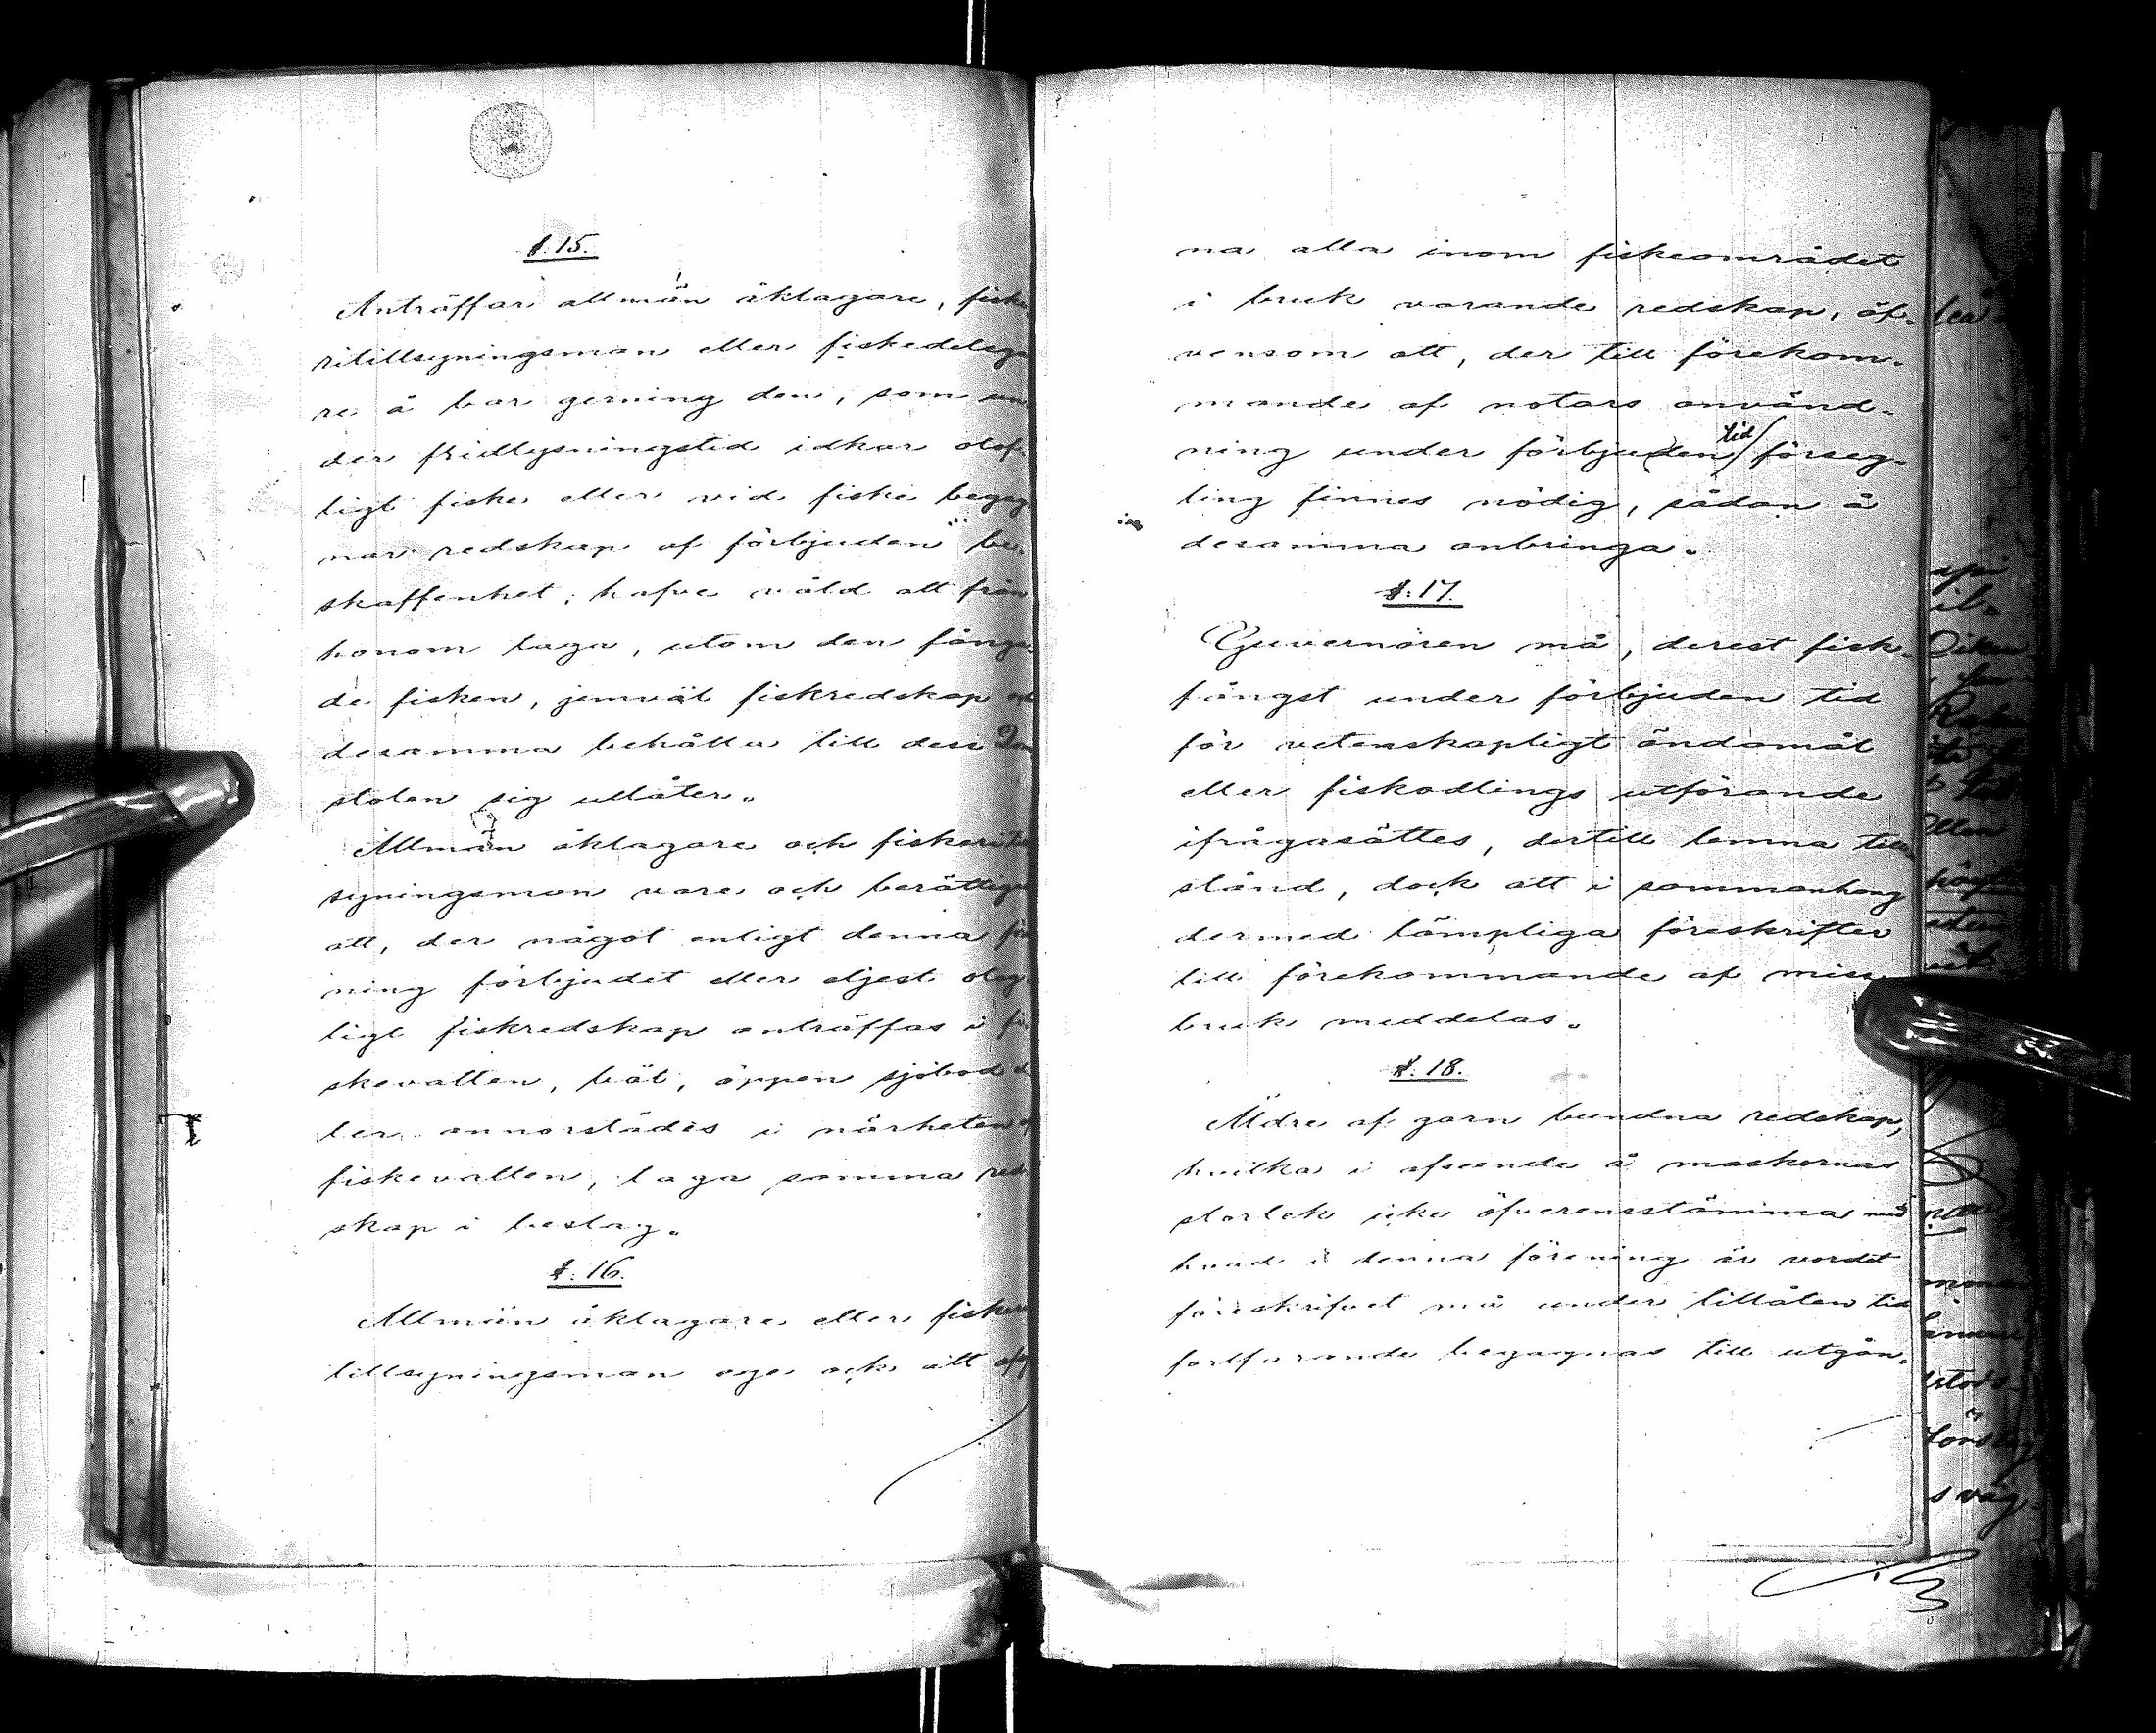 §. 15.
Anträffar allmän åklagare, fiske
ritillsyningsman eller fiskedelega
re å bar gerning den, som un
der fridlysningstid idkar olof-
ligt fiske eller vid fiske begag
nar redskap af förbjuden be-
skaffenhet, hafve våld att från
honom taga, utom den fånga
de fisken, jemväl fiskredskap och
desamma behålla till dess Dom
stolen sig utlåter.
Allmän åklagare och fiskeritill
syningsman vare ock berättiga
att, der något enligt denna för
ning förbjudet eller eljest olag
ligt fiskredskap anträffas i fi
skevatten, båt, öppen sjöbod el
ler annorstädes i närheten af
fiskevatten, taga samma red
skap i beslag.
§. 16.
Allmän åklagare eller fiskeri
tillsyningsman ege ock att
na alla inom fiskeområdet
i bruk varande redskap, äf-
vensom att, der till förekom-
mande af notars använd-
ning under förbjuden tid förseg-
ling finnes nödig, sådan å
desamma anbringa.
§. 17.
Guvernören må, derest fisk-
fångst under förbjuden tid
för vetenskapligt ändamål
eller fiskodlings utförande
ifrågasättes, dertill lemna till
stånd, dock att i sammanhang
dermed lämpliga föreskrifter
till förekommande af miss
bruk meddelas.
§. 18.
Äldre af garn bundna redskap,
hvilka i afseende å maskornas
storlek icke öfverensstämma med
hvad i denna förening är vordet
föreskrifvet må under tillåten tid
fortfarande begagnas till utgån-